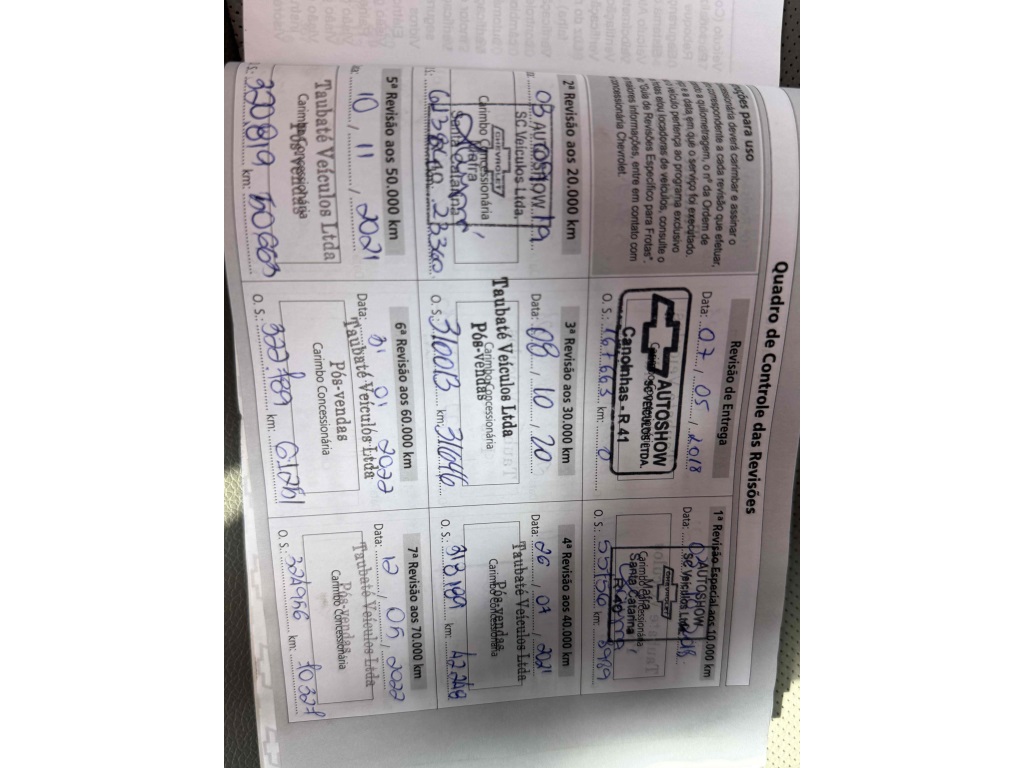 Quadro de Controle das Revisões
para uso
deverá carimbar e assinar o
correspondente a cada revisão que efetuar,
a quilometragem, o nº da Ordem de
e a data em que o serviço foi executado.
veículo pertença ao programa exclusivo
e/ou locadoras de veículos, consulte o
"Guia de Revisões Específico para Frotas".
maiores informações, entre em contato com
concessionária Chevrolet.
Revisão de Entrega
Data: 07 / 05 / 2018
AUTOSHOW
SC VEÍCULOS LTDA.
Canoinhas - R 41
O. S.: 167663 km: 0
1ª Revisão Especial aos 10.000 km
Data:
AUTOSHOW
SC Veículos Ltda.
CHEVROLET
Mafra
Carimbo Concessionária
Santa Catarina
R 40
O. S.: 55156 km: 8989
2ª Revisão aos 20.000 km
AUTOSHOW
SC Veículos Ltda.
CHEVROLET
Carimbo Concessionária
Mafra
Santa Catarina
23360
3ª Revisão aos 30.000 km
Data: 08 / 10 / 20
Taubaté Veículos Ltda
Pós-vendas
Carimbo Concessionária
O. S.: 310013 km: 31046
4ª Revisão aos 40.000 km
Data: 26 / 07 / 2021
Taubaté Veículos Ltda
Pós-vendas
Carimbo Concessionária
O. S.: 318189 km: 42248
5ª Revisão aos 50.000 km
10 / 11 / 2021
Taubaté Veículos Ltda
Pós-vendas
Carimbo Concessionária
320819 km: 50663
6ª Revisão aos 60.000 km
Data: 31 01 2022
Taubaté Veículos Ltda
Pós-vendas
Carimbo Concessionária
O. S.: 322789 km: 61251
7ª Revisão aos 70.000 km
Data: 12 / 05 / 2022
Taubaté Veículos Ltda
Pós-vendas
Carimbo Concessionária
O. S.: 324956 km: 70327